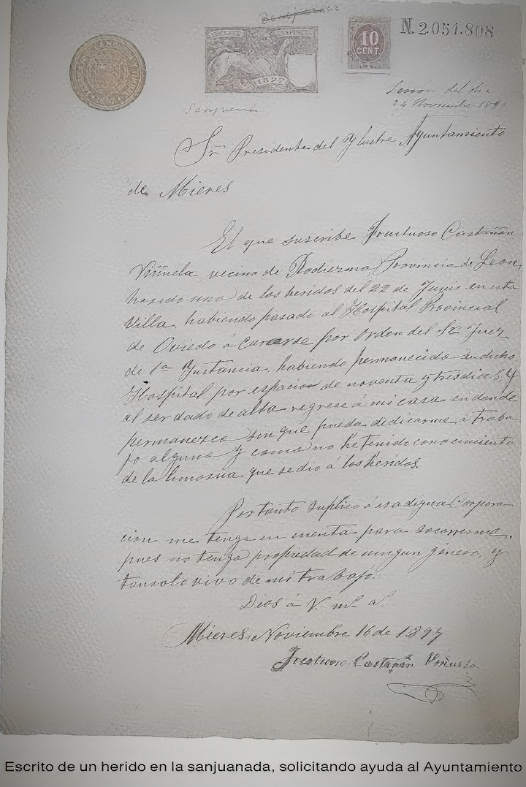 N. 2.051.808
10
CENT.
1897
Sesion del dia
24 Noviembre 189
Sr. Presidente del Ylustre Ayuntamiento
de Mieres
El que suscribe Fructuoso Castañon
Viñuela vecino de Rodiezmo, Provincia de Leon,
herido uno de los heridos del 22 de Junio en esta
Villa, habiendo pasado al Hospital Provincial
de Oviedo a curarse por orden del Sr. Juez
de 1ª Ynstancia, habiendo permanecido en dicho
Hospital por espacio de noventa y tres dias, y
al ser dado de alta regresé á mi casa en donde
permanezco sin que pueda dedicarme á traba
jo alguno y como no he tenido conocimiento
de la limosna que se dio á los heridos.
Por tanto suplico á esa digna Corpora
cion me tenga en cuenta para socorrerme,
pues no tengo propiedad de ningun género, y
tan solo vivo de mi trabajo.
Dios á V. m. a.
Mieres, Noviembre 16 de 1897
Fructuoso Castañon Viñuela
Escrito de un herido en la sanjuanada, solicitando ayuda al Ayuntamiento